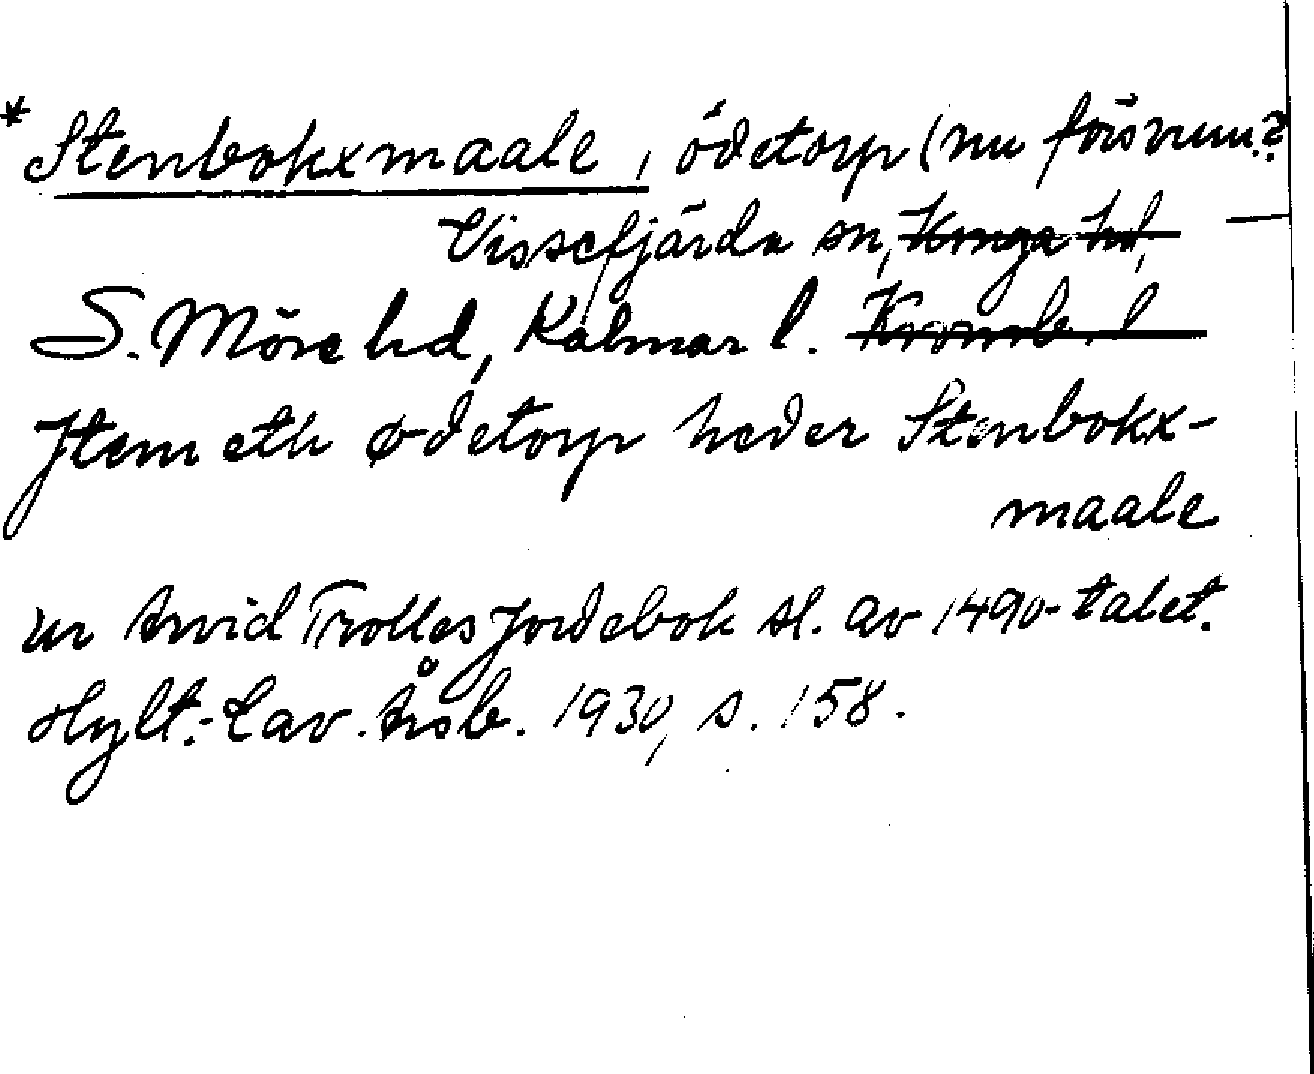 * Stenbokxmaale, ödetorp (nu försvun.?
Vissefjärda sn, Konga hd,
S. Möre hd, Kalmar l. Kronob. l
Jtem eth ødetorp heder Stenbokx-
maale
ur Arvid Trolles Jordebok sl. av 1490-talet.
Hylt.-Cav. Årsb. 1930, s. 158.